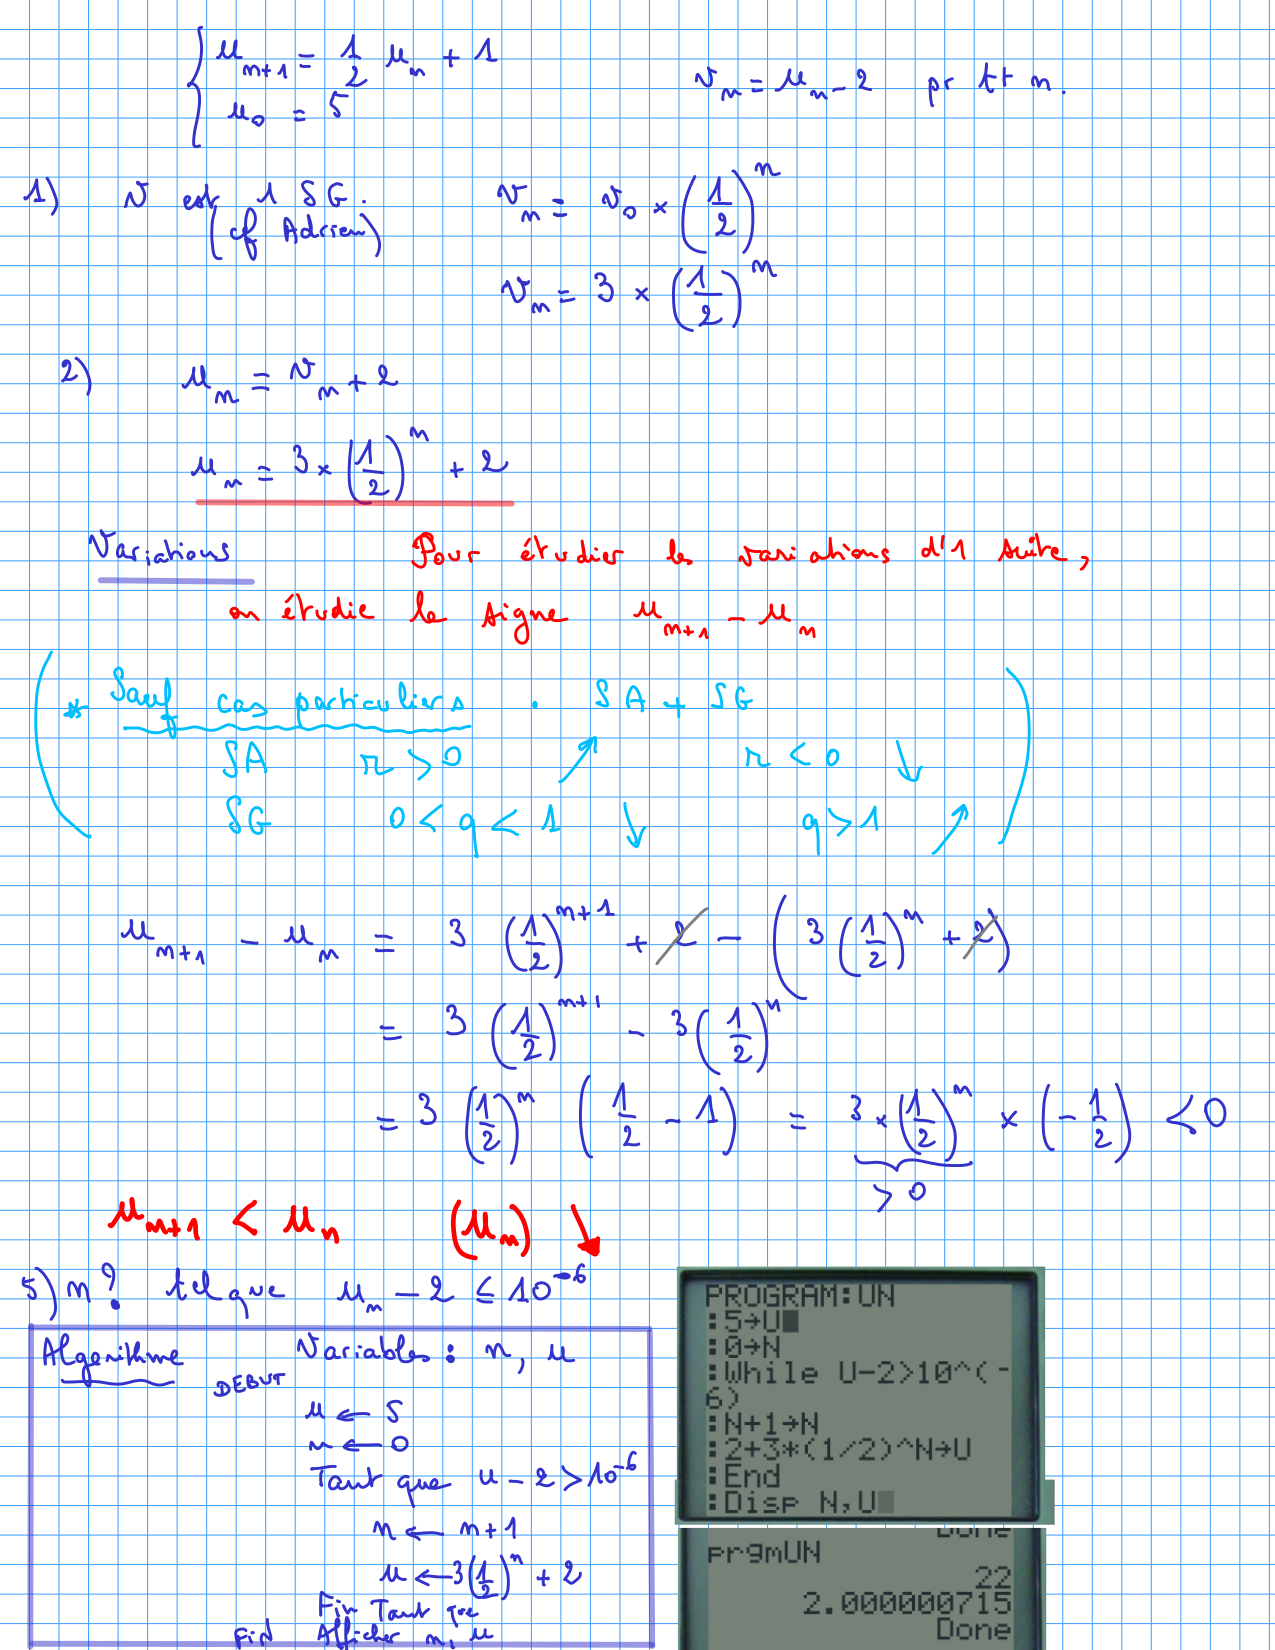 u_{n+1} = 1/2 u_n + 1
u_0 = 5
v_n = u_n - 2 pr tt n.
1) v est 1 SG. v_n = v_0 × (1/2)^n
(cf Adrien)
v_n = 3 × (1/2)^n
2) u_n = v_n + 2
u_n = 3 × (1/2)^n + 2
Variations Pour étudier les variations d'1 suite,
on étudie le signe u_{n+1} - u_n
(* Sauf cas particuliers . SA + SG
SA r > 0 ↗ r < 0 ↘
SG 0 < q < 1 ↘ q > 1 ↗)
u_{n+1} - u_n = 3 (1/2)^{n+1} + 2 - (3 (1/2)^n + 2)
= 3 (1/2)^{n+1} - 3 (1/2)^n
= 3 (1/2)^n (1/2 - 1) = 3 × (1/2)^n × (-1/2) < 0
> 0
u_{n+1} < u_n (u_n) ↘
5) n? tel que u_n - 2 ≤ 10^{-6}
Algorithme Variables : n, u
DEBUT
u ← 5
n ← 0
Tant que u - 2 > 10^{-6}
n ← n+1
u ← 3(1/2)^n + 2
Fin Tant que
Fin Afficher n, u
PROGRAM:UN
:5→U
:0→N
:While U-2>10^(-
6)
:N+1→N
:2+3*(1/2)^N→U
:End
:Disp N,U
Done
prgmUN
22
2.000000715
Done